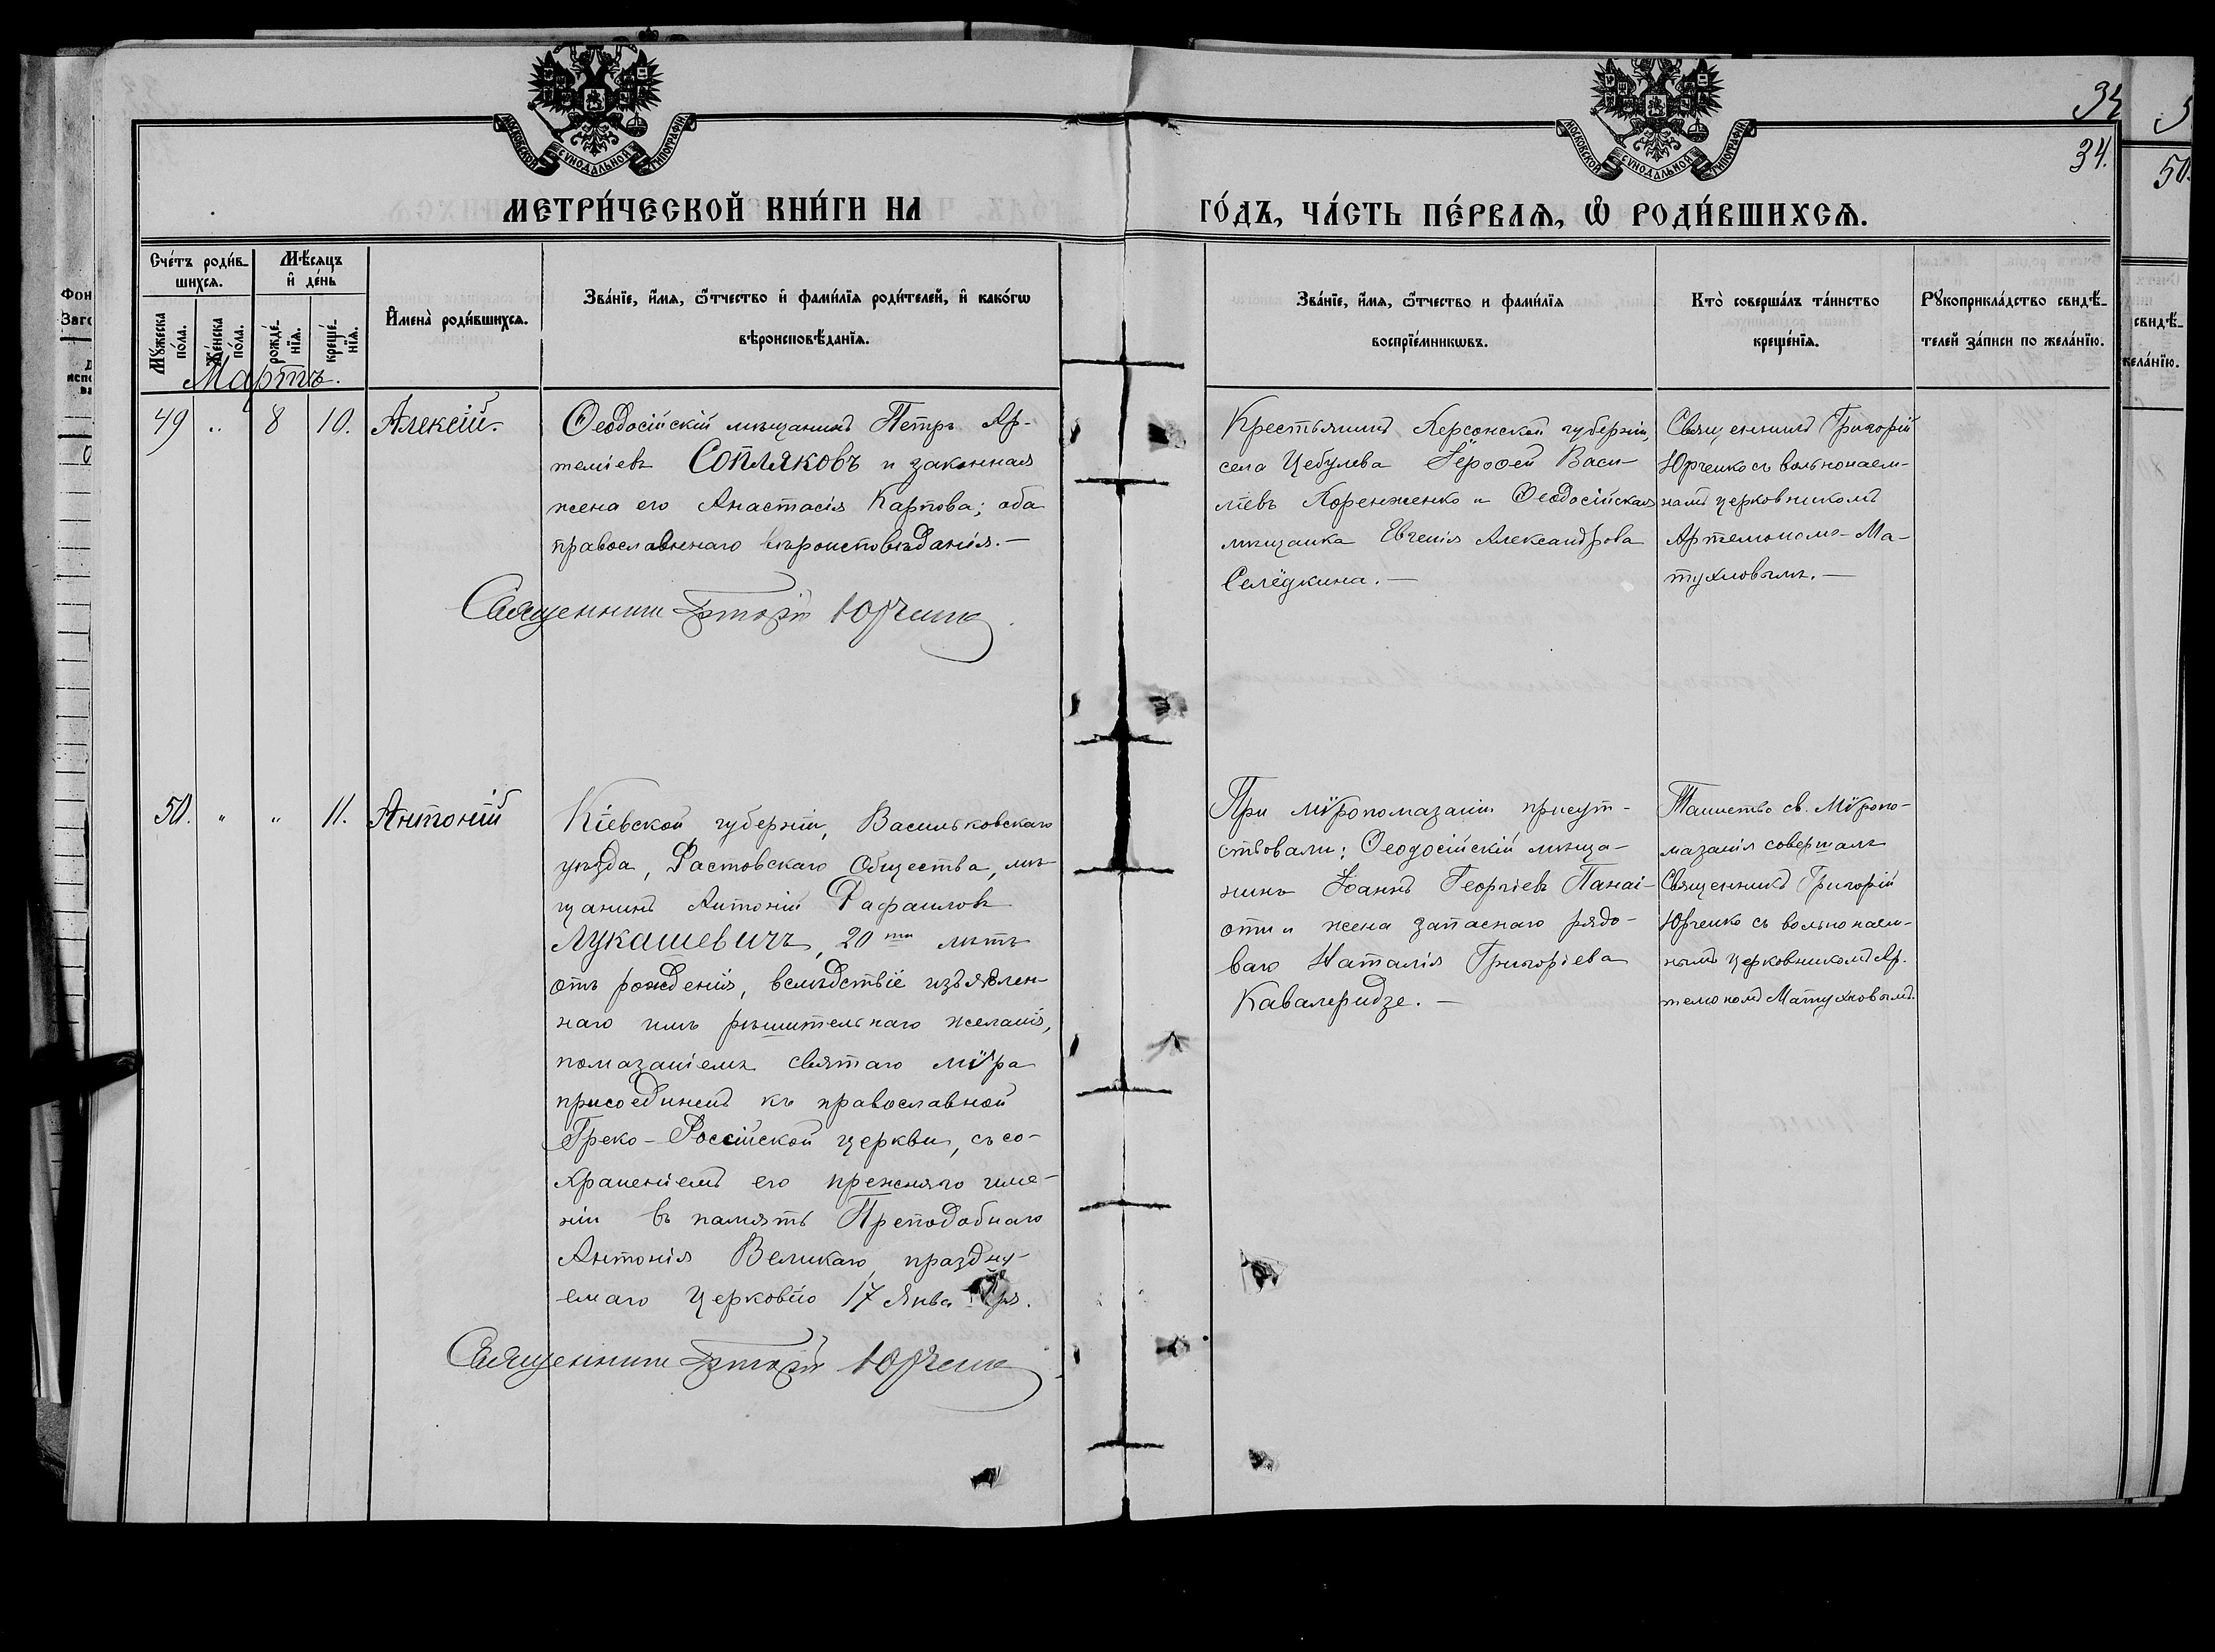 34
34.
5
50.
МОСКОВСКОЙ СУНОДАЛЬНОЙ ТИПОГРАФІИ
МОСКОВСКОЙ СУНОДАЛЬНОЙ ТИПОГРАФІИ
МЕТРИ́ЧЕСКОЙ КНИ́ГИ НА
ГО́ДЪ, ЧА́СТЬ ПЕ́РВАѦ, Ѽ РОДИ́ВШИХСѦ.
Сче́тъ роди́в-
шихсѧ.
Мѣ́сѧцъ
и҆ де́нь
Мꙋ́жеска
по́ла.
Же́нска
по́ла.
рожде́-
нїѧ.
креще́-
нїѧ.
И҆мена̀ роди́вшихсѧ.
Зва́нїе, и҆́мѧ, ѻ҆́тчество и҆ фами́лїѧ роди́телей, и҆ како́гѡ
вѣроисповѣ́данїѧ.
Зва́нїе, и҆́мѧ, ѻ҆́тчество и фами́лїѧ
воспрїе́мникѡвъ.
Кто̀ соверша́лъ та́инство
креще́нїѧ.
Рꙋкоприкла́дство свидѣ́-
телей за́писи по жела́нїю.
свидѣ́-
жела́нїю.
Фон
Заго
Мартъ.
49 " 8 10. Алексій.
Ѳеодосійскій мѣщанинъ Петръ Ар-
теміевъ Сопляковъ и законная
жена его Анастасія Карпова; оба
православнаго вѣроисповѣданія.—
Священникъ Григорій Юрченко
Крестьянинъ Херсонской губерніи,
села Цебулева Іероѳей Васи-
ліевъ Коренженко и Ѳеодосійская
мѣщанка Евгенія Александрова
Селёдкина.—
Священникъ Григорій
Юрченко съ вольнонаем-
нымъ церковникомъ
Артемономъ Ма-
тухновымъ.—
50. " " 11. Антоній
Кіевской губерніи, Васильковскаго
уѣзда, Фастовскаго Общества, мѣ-
щанинъ Антоній Рафаиловъ
Лукашевичъ, 20ти лѣтъ
отъ рожденія, вслѣдствіе изъявлен-
наго имъ рѣшительнаго желанія,
помазаніемъ святаго мѵра
присоединенъ къ православной
Греко-Россійской церкви, съ со-
храненіемъ его прежняго име-
ни въ память Преподобнаго
Антонія Великаго, праздну-
емаго Церковію 17 Января.
Священникъ Григорій Юрченко
При мѵропомазаніи присут-
ствовали: Ѳеодосійскій мѣща-
нинъ Іоаннъ Георгіевъ Панаі-
оти и жена запаснаго рядо-
ваго Наталія Григоріева
Кавалеридзе.—
Таинство св. Мѵропо-
мазанія совершалъ
Священникъ Григорій
Юрченко съ вольнонаем-
нымъ церковникомъ Ар-
темономъ Матухновымъ.